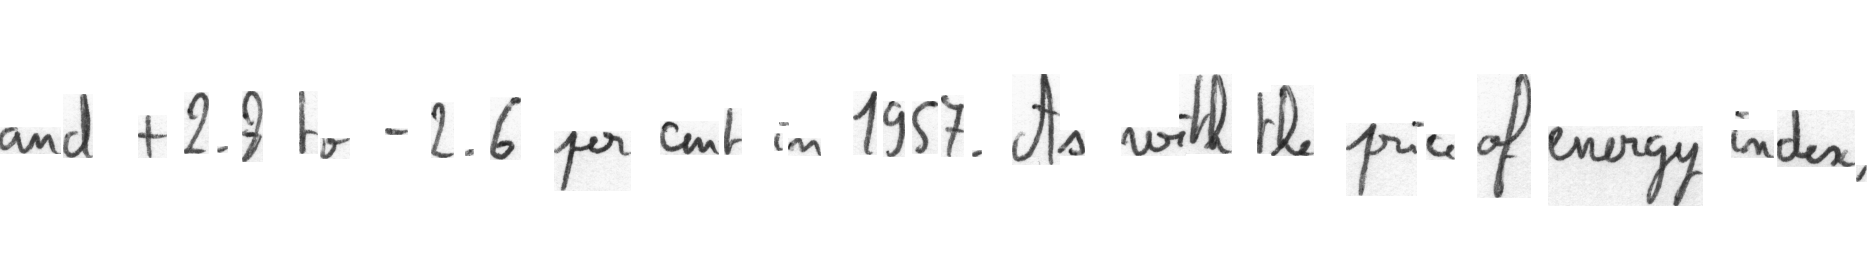 and +2.3 to -2.6 per cent in 1957. As with the price of energy index,